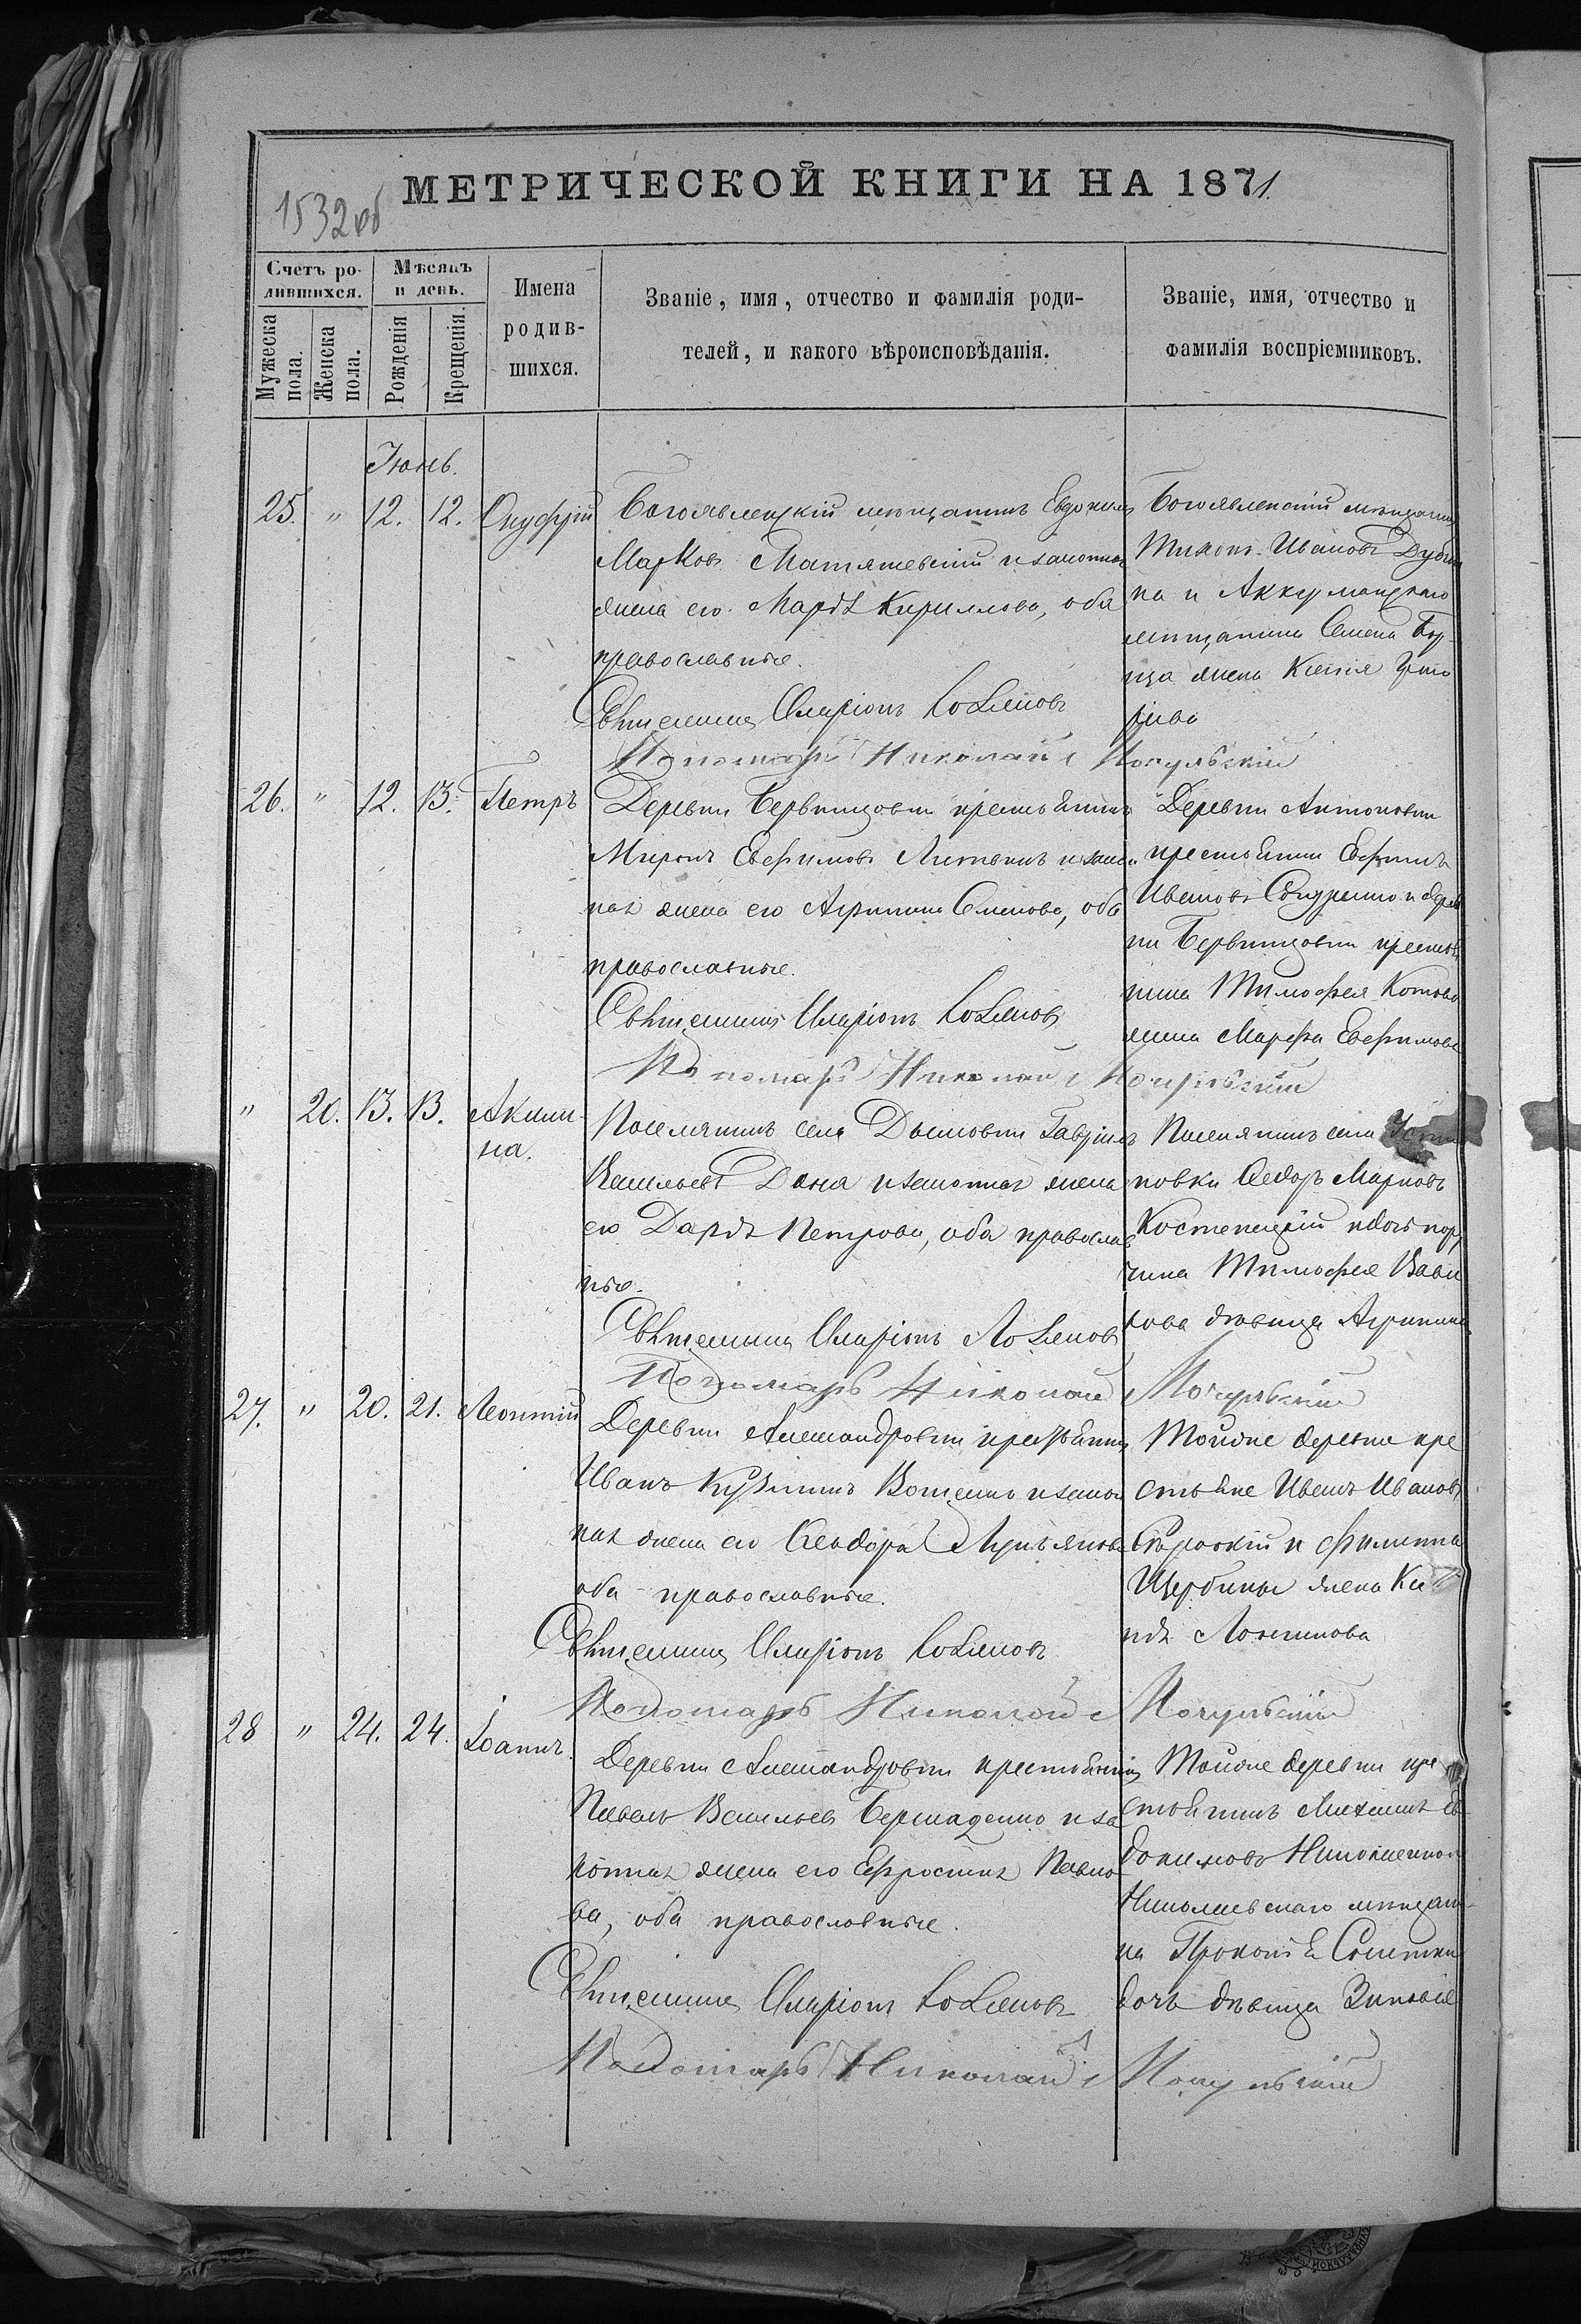 МЕТРИЧЕСКОЙ КНИГИ НА 1871.
1532об
Счетъ ро-
дившихся.
Мужеска пола.
Женска пола.
Мѣсяцъ
и день.
Рожденія
Крещенія.
Имена
родив-
шихся.
Званіе, имя, отчество и фамилія роди-
телей, и какого вѣроисповѣданія.
Званіе, имя, отчество и
фамилія воспріемниковъ.
Іюнь.
25. " 12. 12. Онуфрій
Богоявленскій мѣщанинъ Евдокимъ
Марковъ Матяшевскій и законная
жена его Марѳа Кириллова, оба
православные.
Священникъ Иларіонъ
Пономарь Николай Мочульскій
Богоявленскій мѣщанинъ
Тихонъ Ивановъ
на и Аккерманскаго
мѣщанина Семена
жена Ксенія
26. " 12. 13. Петръ
Деревни крестьянинъ
Миронъ Евфимовъ Литвинъ и закон
ная жена его Агрипина Семенова, оба
православные.
Священникъ Иларіонъ
Пономарь Николай Мочульскій
Деревни Антоновки
крестьянинъ Евфимъ
Ивановъ и дерев
ни крестья
нина Тимофея
жена Марфа Евфимова
" 20. 13. 13. Акили-
на.
Поселянинъ села Гавріилъ
Васильевъ и законная жена
его Дарья Петрова, оба православ
ные.
Священникъ Иларіонъ
Пономарь Николай Мочульскій
Поселянинъ села
новки Ѳедоръ Марковъ
Костецкій и дочь пору
чика Тимофея Вави
лова дѣвица Агрипина
27. " 20. 21. Леонтій
Деревни Александровки крестьянинъ
Иванъ Кузьминъ и закон
ная жена его Ѳеодора Лукьянова
оба православные.
Священникъ Иларіонъ
Пономарь Николай Мочульскій
Той же деревни кре
стьяне Иванъ Ивановъ
и Филиппа
Щербины жена
Логинова
28 " 24. 24. Іоаннъ.
Деревни Александровки крестьянинъ
Павелъ Васильевъ и за
конная жена его Ефросинія Павло
ва, оба православные.
Священникъ Иларіонъ
Пономарь Николай Мочульскій
Той же деревни кре
стьянинъ Михаилъ Ев
докимовъ
Николаевскаго мѣщани
на Прокопія
дочь дѣвица Зиновія